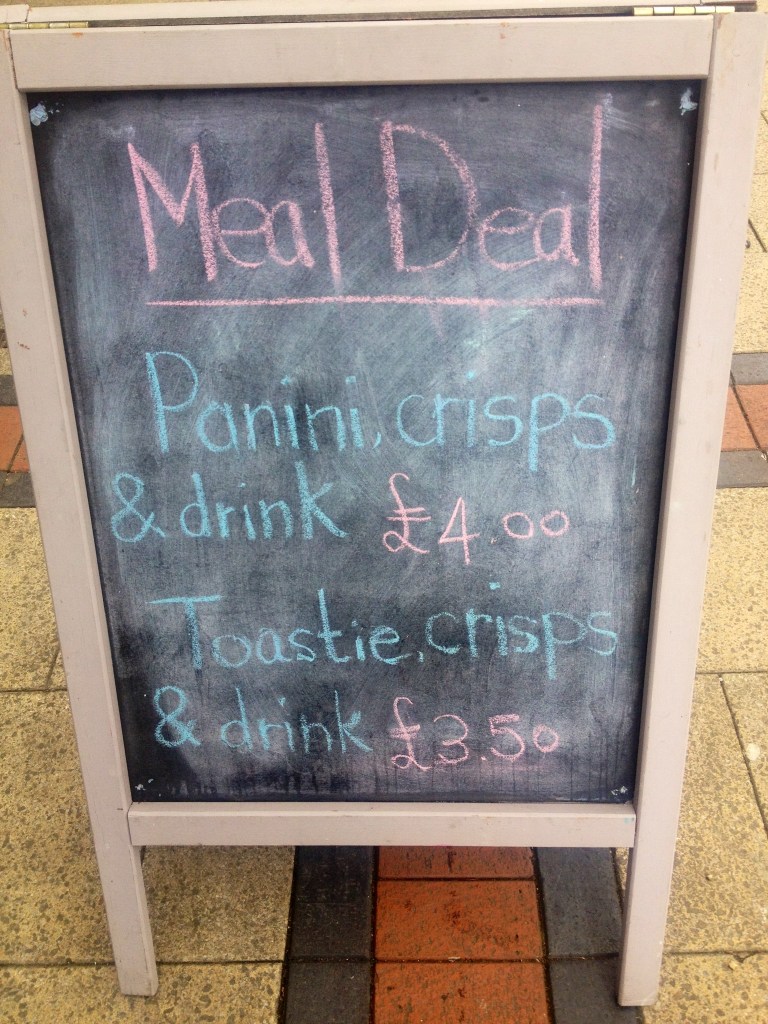 Meal Deal
Panini, crisps
& drink £4.00
Toastie, crisps
& drink £3.50